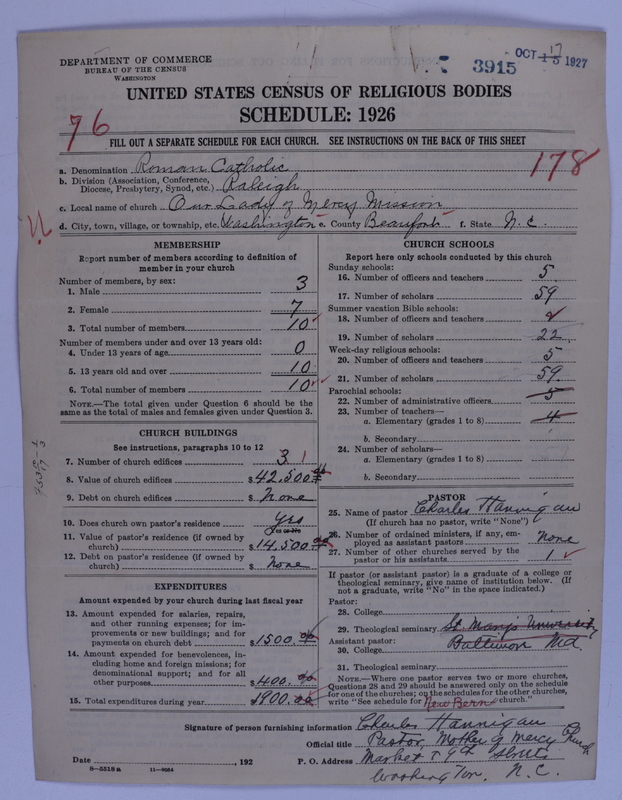 DEPARTMENT OF COMMERCE
BUREAU OF THE CENSUS
WASHINGTON
3915
OCT 15 1927
17
UNITED STATES CENSUS OF RELIGIOUS BODIES
SCHEDULE: 1926
76
FILL OUT A SEPARATE SCHEDULE FOR EACH CHURCH. SEE INSTRUCTIONS ON THE BACK OF THIS SHEET
178
a. Denomination Roman Catholic
b. Division (Association, Conference, Diocese, Presbytery, Synod, etc.) Raleigh
c. Local name of church Our Lady of Mercy Mission
d. City, town, village, or township, etc. Washington e. County Beaufort f. State N.C.
MEMBERSHIP
Report number of members according to definition of
member in your church
Number of members, by sex:
1. Male 3
2. Female 7
3. Total number of members 10
Number of members under and over 13 years old:
4. Under 13 years of age 0
5. 13 years old and over 10
6. Total number of members 10
NOTE.—The total given under Question 6 should be
same as the total of males and females given under Question 3.
CHURCH BUILDINGS
See instructions, paragraphs 10 to 12
7. Number of church edifices 3 1
8. Value of church edifices $42,500.00
9. Debt on church edifices $ None
10. Does church own pastor's residence Yes
Yes or No
11. Value of pastor's residence (if owned by
church) $14,500.00
12. Debt on pastor's residence (if owned by
church) $ None
EXPENDITURES
Amount expended by your church during last fiscal year
13. Amount expended for salaries, repairs,
and other running expenses; for im-
provements or new buildings; and for
payments on church debt $1500.00
14. Amount expended for benevolences, in-
cluding home and foreign missions; for
denominational support; and for all
other purposes $400.00
15. Total expenditures during year $1900.00
CHURCH SCHOOLS
Report here only schools conducted by this church
Sunday schools:
16. Number of officers and teachers 5
17. Number of scholars 59
Summer vacation Bible schools:
18. Number of officers and teachers 2
19. Number of scholars 22
Week-day religious schools:
20. Number of officers and teachers 5
21. Number of scholars 59
Parochial schools:
22. Number of administrative officers 5
23. Number of teachers—
a. Elementary (grades 1 to 8) 4
b. Secondary
24. Number of scholars—
a. Elementary (grades 1 to 8)
b. Secondary
PASTOR
25. Name of pastor Charles Hannigan
(If church has no pastor, write "None")
26. Number of ordained ministers, if any, em-
ployed as assistant pastors None
27. Number of other churches served by the
pastor or his assistants 1
If pastor (or assistant pastor) is a graduate of a college or
theological seminary, give name of institution below. (If
not a graduate, write "No" in the space indicated.)
Pastor:
28. College
29. Theological seminary St. Mary's University
Assistant pastor:
30. College Baltimore Md.
31. Theological seminary
NOTE.—Where one pastor serves two or more churches,
Questions 28 and 29 should be answered only on the schedule
for one of the churches; on the schedules for the other churches,
write "See schedule for New Bern church."
Signature of person furnishing information Charles Hannigan
Official title Pastor, Mother of Mercy Church
Date , 192 P. O. Address Market & 9th Streets
8—5318a 11—9054
Washington, N. C.